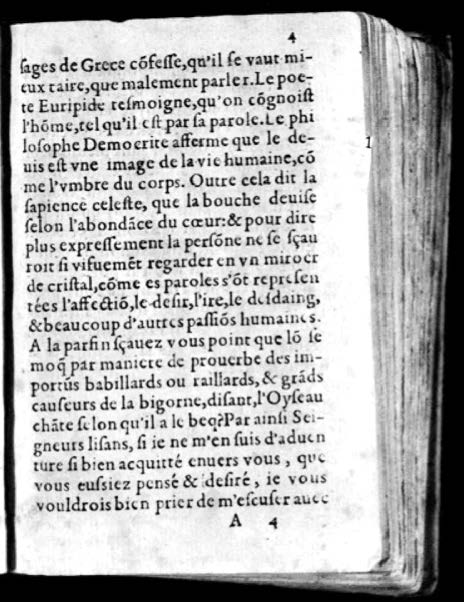 4
sages de Grece cõfesse,qu'il se vaut mi-
eux taire,que malement parler.Le poe-
te Euripide tesmoigne,qu'on cõgnoist
l'hõme,tel qu'il est par sa parole.Le phi
losophe Democrite afferme que le de-
uis est vne image de la vie humaine,cõ
me l'vmbre du corps. Outre cela dit la
sapience celeste, que la bouche deuise
selon l'abondãce du cœur:& pour dire
plus expressement la persõne ne se sçau
roit si vifuemẽt regarder en vn miroer
de cristal,cõme es paroles s'õt represen
tées l'affectiõ,le desir,l'ire,le desdaing,
&beaucoup d'autres passiõs humaines.
A la parfin sçauez vous point que lõ se
moq̃ par maniere de prouerbe des im-
portũs babillards ou raillards,& grãds
causeurs de la bigorne,disant,l'Oyseau
chãte selon qu'il a le beq?Par ainsi Sei-
gneurs lisans, si ie ne m'en suis d'aduen
ture si bien acquitté enuers vous , que
vous eussiez pensé & desiré, ie vous
vouldrois bien prier de m'escuser auec
A 4
1